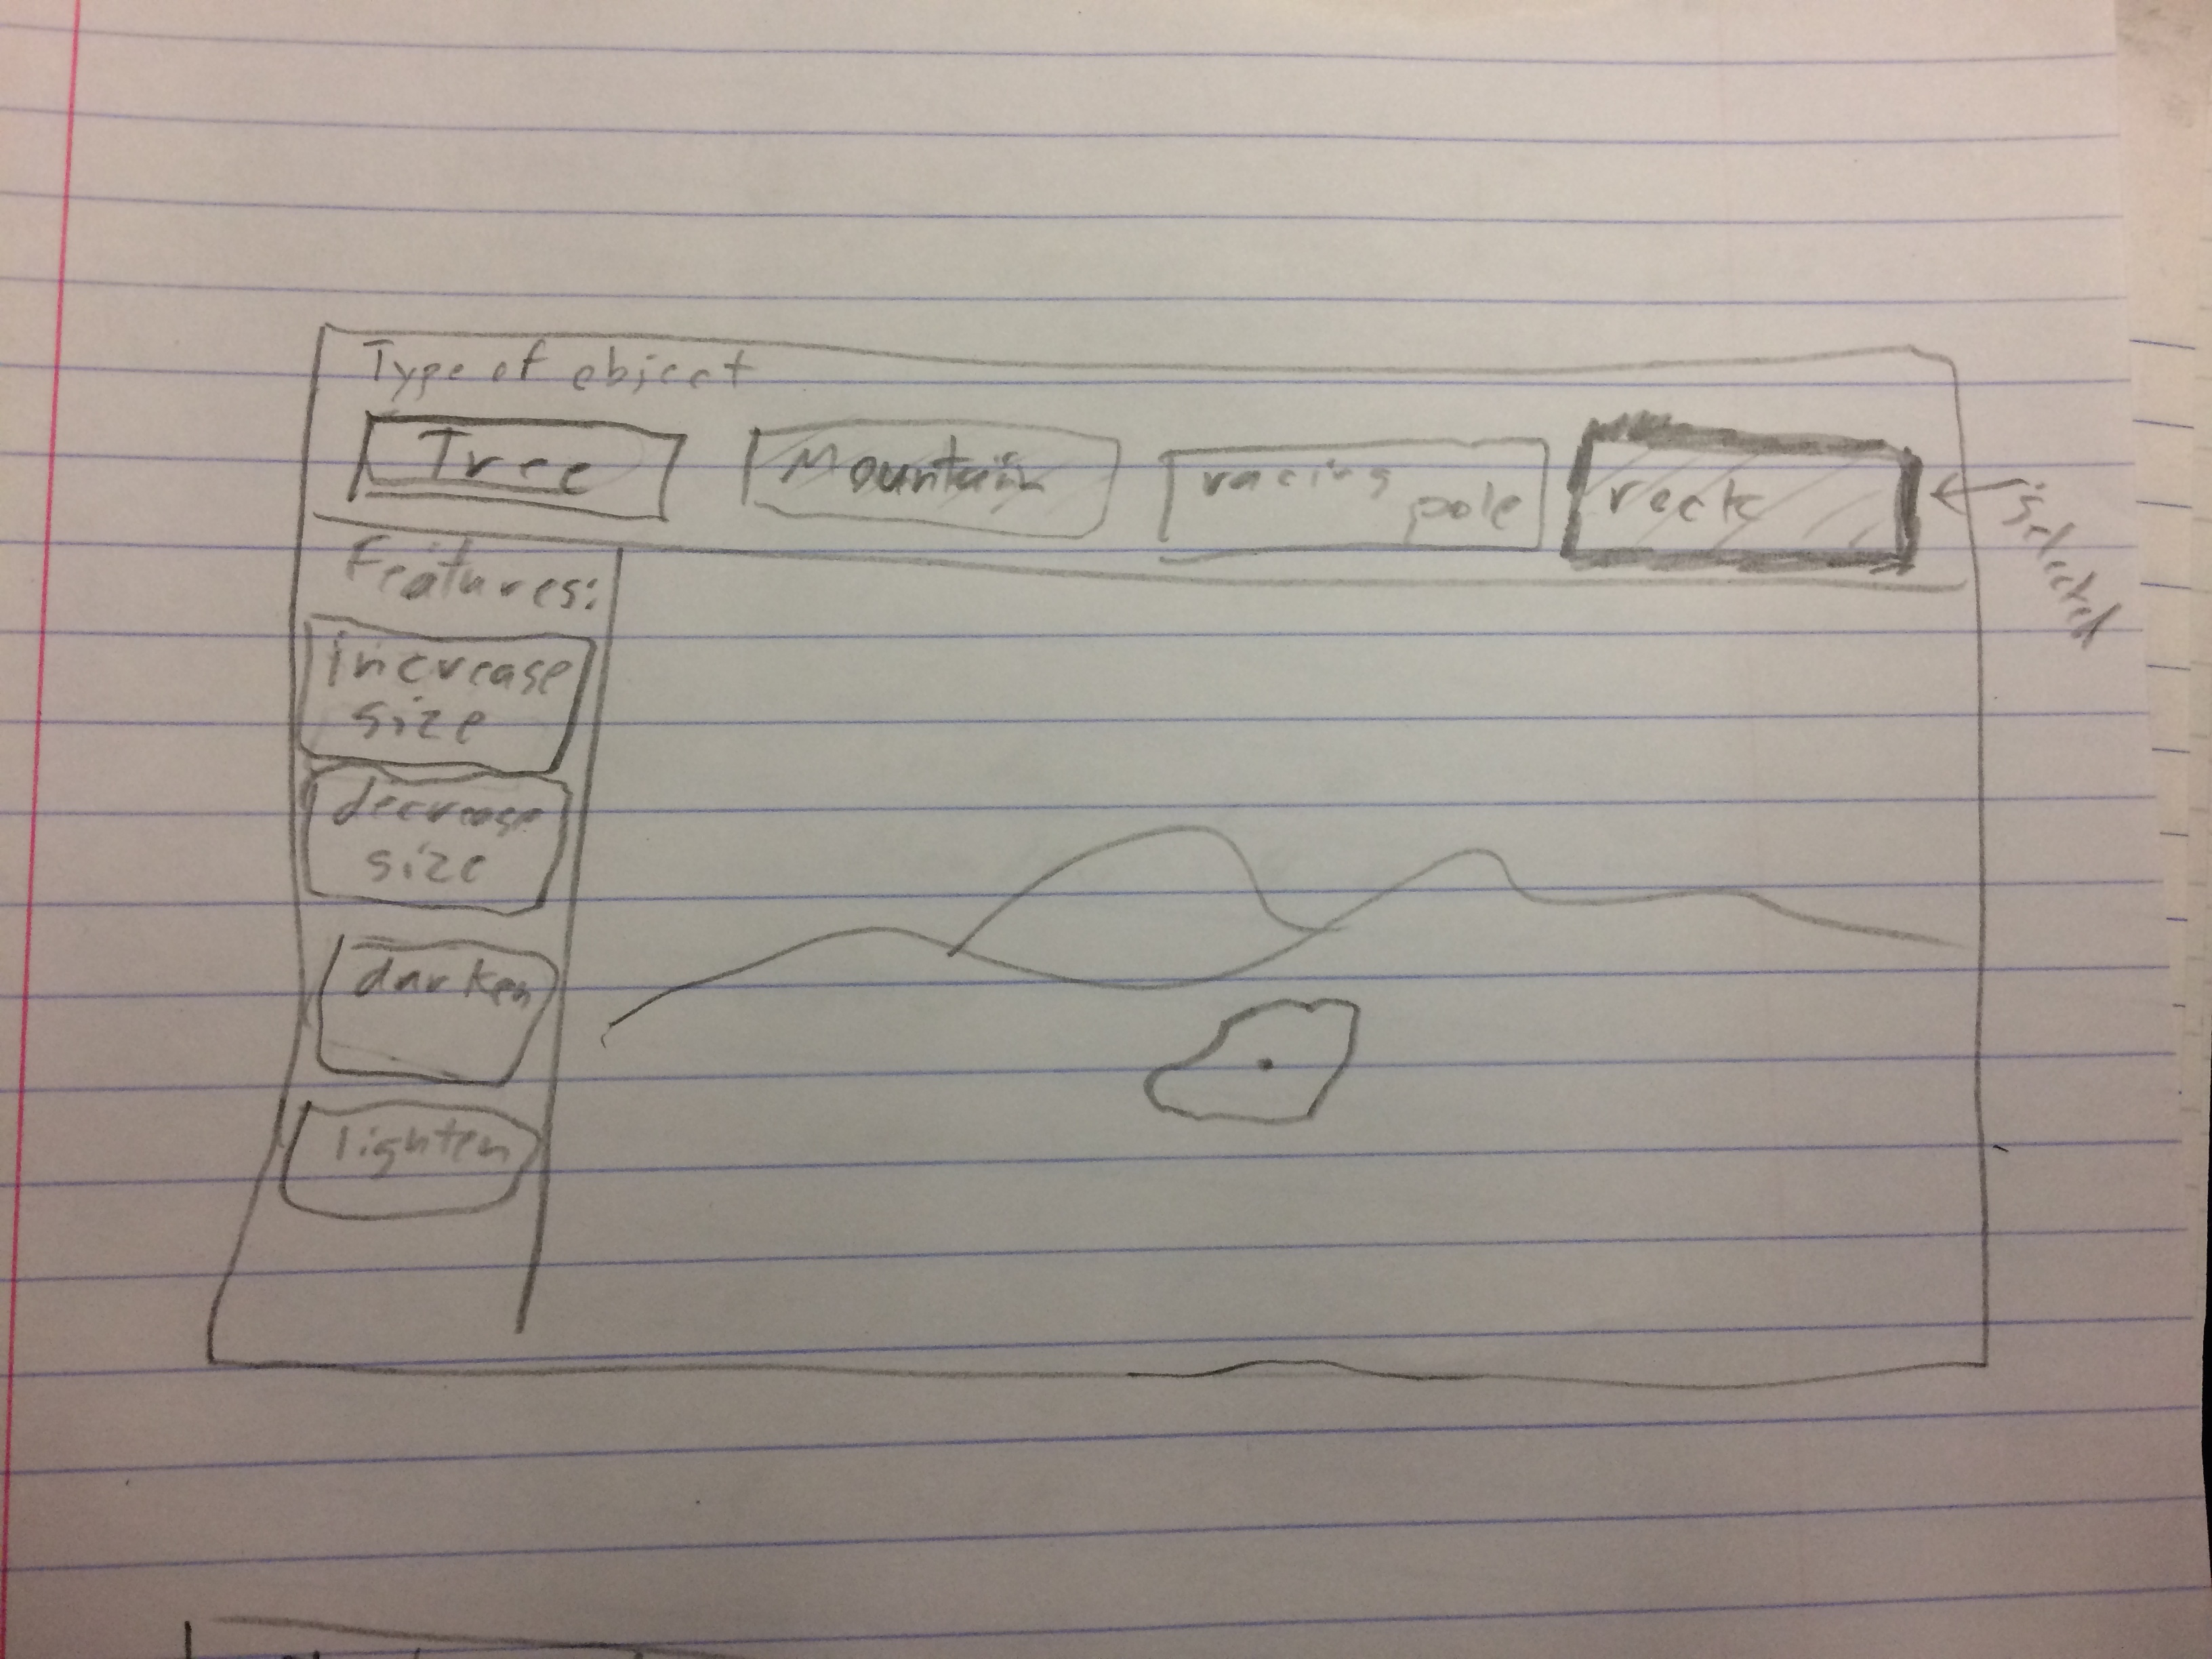 Type of object
Tree
Mountain
racing
pole
rock
selected
Features:
increase
size
decrease
size
darken
lighten